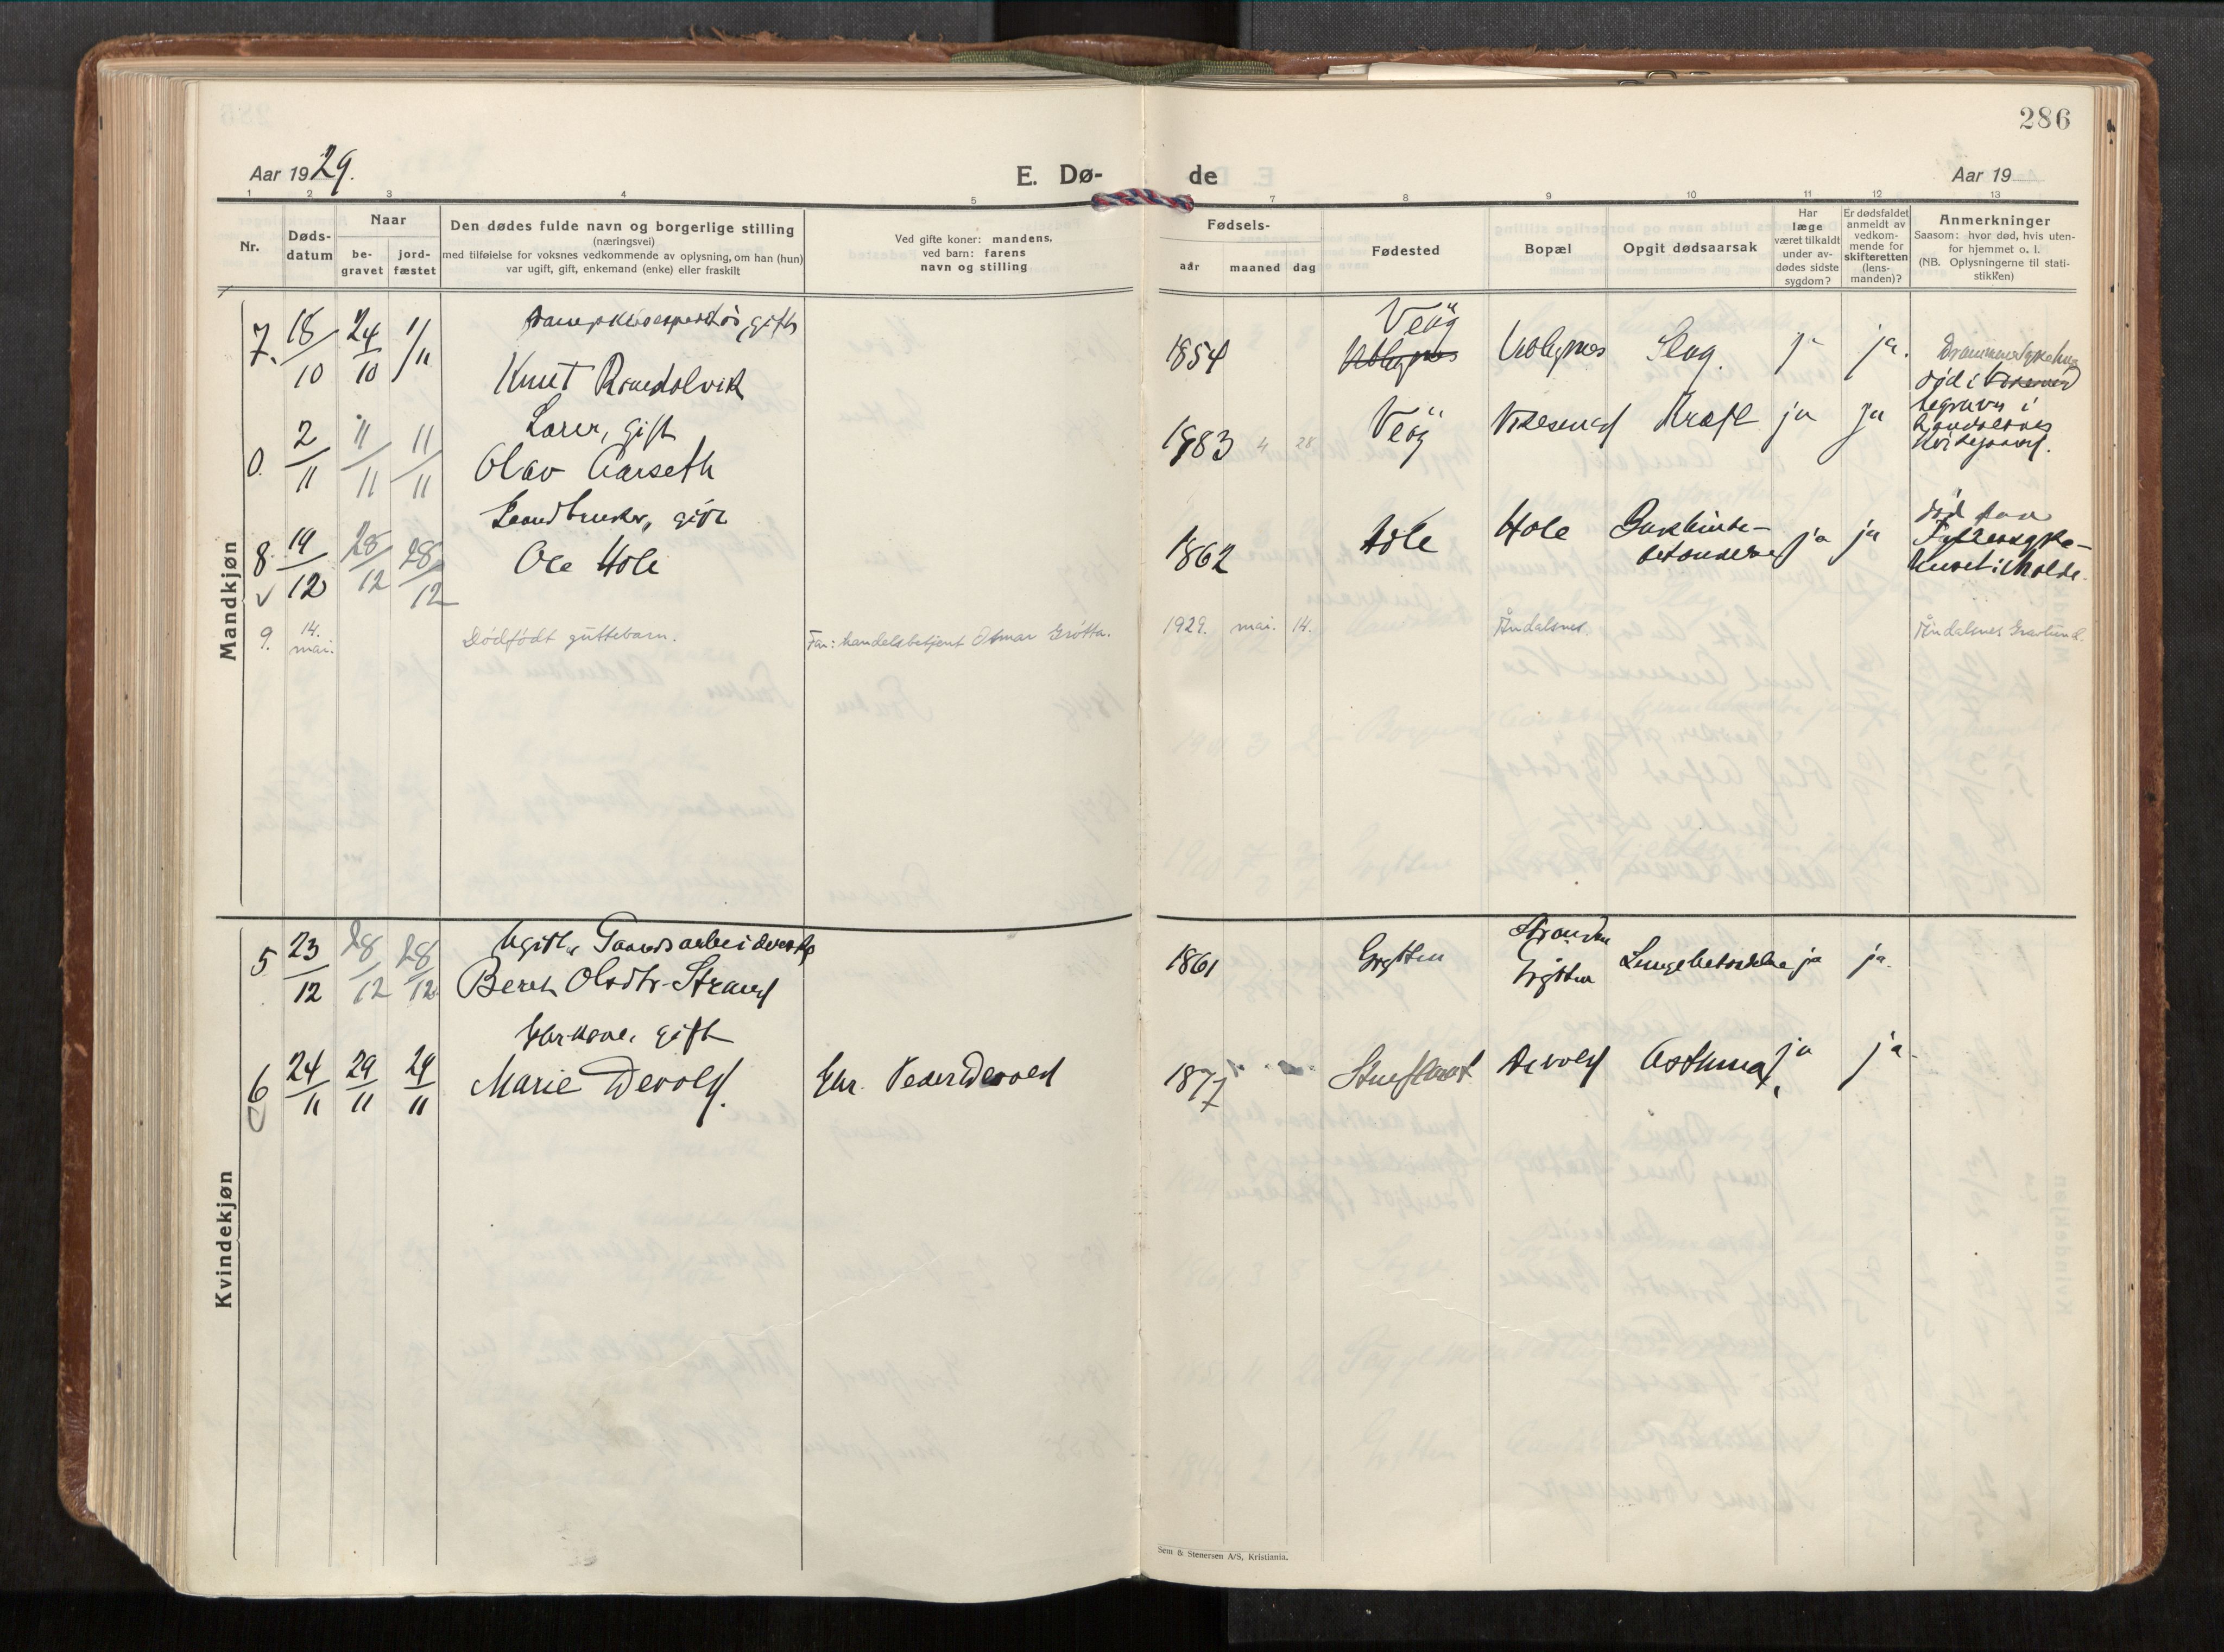 286
Aar 1929.
E. Dø-
de
Aar 19
1 2 3 4 5 7 8 9 10 11 12 13
Nr.
Døds-
datum
Naar
be-
gravet
jord-
fæstet
Den dødes fulde navn og borgerlige stilling
(næringsvei)
med tilføielse for voksnes vedkommende av oplysning, om han (hun)
var ugift, gift, enkemand (enke) eller fraskilt
Ved gifte koner: mandens,
ved barn: farens
navn og stilling
Fødsels-
aar maaned dag
Fødested
Bopæl
Opgit dødsaarsak
Har
læge
været tilkaldt
under av-
dødes sidste
sygdom?
Er dødsfaldet
anmeldt av
vedkom-
mende for
skifteretten
(lens-
manden)?
Anmerkninger
Saasom: hvor død, hvis uten-
for hjemmet o. l.
(NB. Oplysningerne til stati-
stikken)
Mandkjøn
gift
7. 18/10 24/10 1/11
Knut
1854 Veøy Slag. ja ja.
død i
Lærer, gift
0. 2/11 11/11 11/11
Olav Aarseth
1883 4 28 Veøy Kræft ja ja
begravet i
Landbruker, gift
8. 19/12 28/12 28/12
Ole Hole
1862 Hole Hole ja ja
død paa
huset i Molde.
9. 14. mai. Dødfødt guttebarn. Far: handelsbetjent Osmar Grøtta. 1929. mai. 14. Åndalsnes. Åndalsnes Gravlund.
Kvindekjøn
Ugift, Gaardsarbeiderske
5 23/12 28/12 28/12
Beret Olsdtr. Strand
1861 Grytten Stranden
Grytten Lungebetændelse ja ja.
gift
6 24/11 29/11 29/11
Marie Devold. Gbr. Peder Devold
1877 Devold Asthma, ja ja.
Sem & Stenersen A/S, Kristiania.